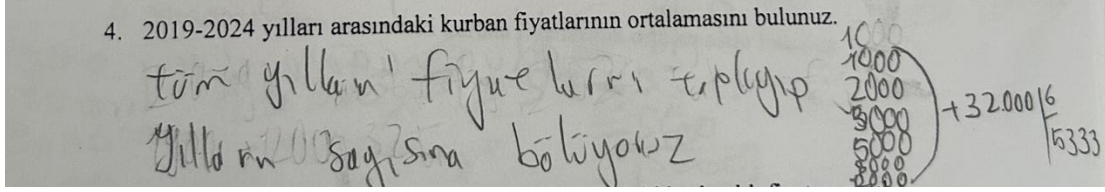 4. 2019-2024 yılları arasındaki kurban fiyatlarının ortalamasını bulunuz.
tüm yılların fiyatlarını toplayıp
yılların sayısına bölüyoruz
1000
1000
2000
3000
5000
8000
+32.000 6
5333